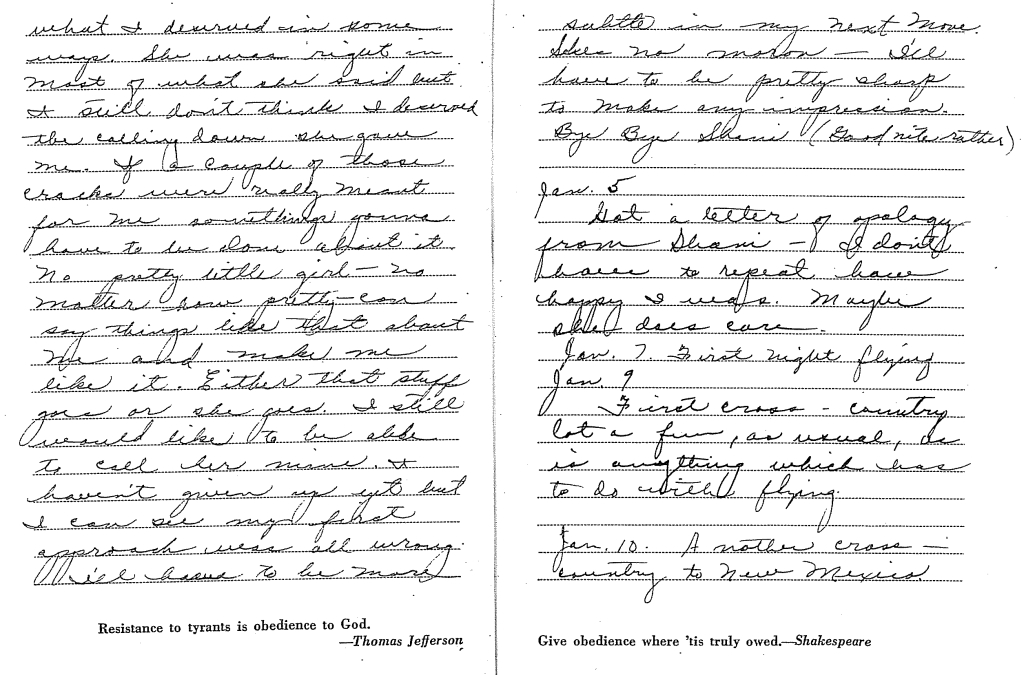 what I deserved in some
ways. She was right in
most of what she said but
I still don't think I deserved
the calling down she gave
me. If a couple of those
cracks were really meant
for me somethings gonna
have to be done about it.
No pretty little girl — no
matter how pretty — can
say things like that about
me and make me
like it. Either that stuff
goes or she goes. I still
would like to be able
to call her mine. I
haven't given up yet but
I can see my first
approach was all wrong.
I'll have to be more
Resistance to tyrants is obedience to God.
—Thomas Jefferson
subtle in my next move.
Shes no moron — I'll
have to be pretty sharp
to make any impression.
Bye Bye Shani (Good nite rather)
Jan. 5
Got a letter of apology
from Shani — I don't
have to repeat how
happy I was. Maybe
she does care.
Jan. 7. First night flying
Jan. 9
First cross-country
lot a fun, as usual, as
is anything which has
to do with flying.
Jan. 10. Another cross —
country to New Mexico.
Give obedience where 'tis truly owed.—Shakespeare